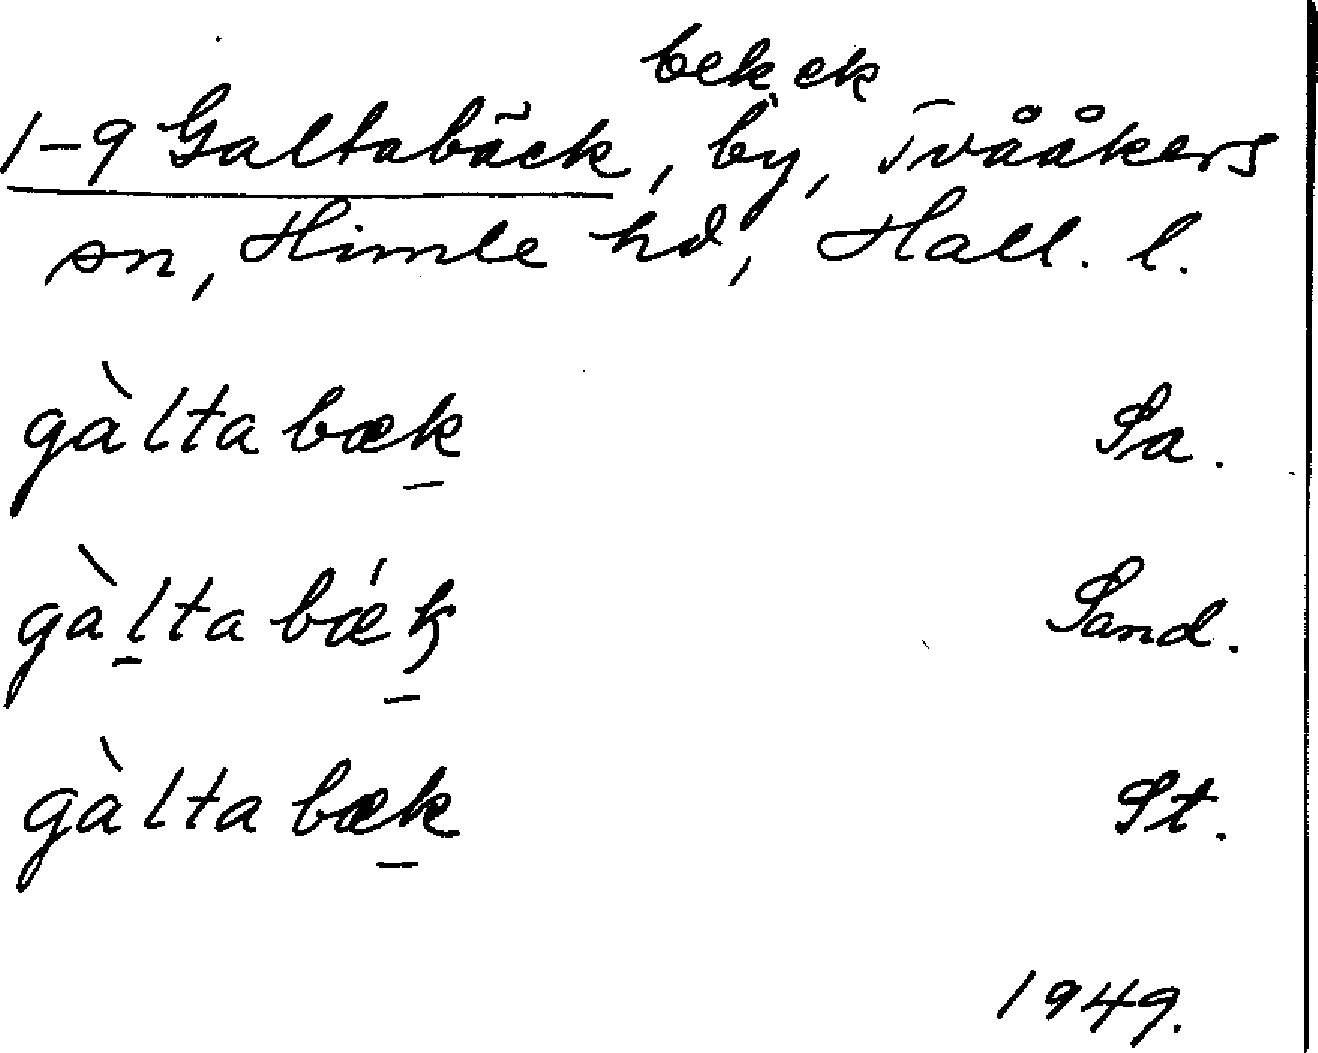 bek ek
1–9 Galtabäck, by, Tvååkers
sn, Himle hd, Hall. l.
gàltabæk Sa.
gàltabǽk Sand.
gàltabæk St.
1949.